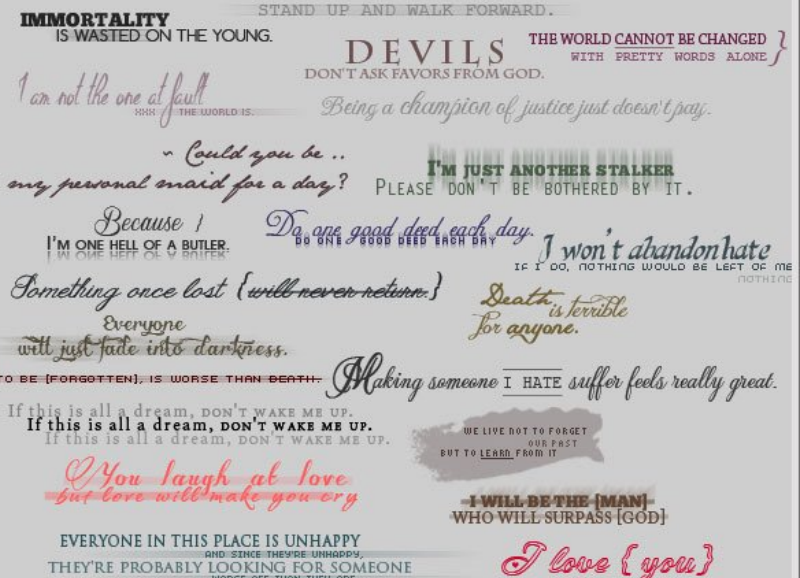 STAND UP AND WALK FORWARD.
IMMORTALITY
IS WASTED ON THE YOUNG.
DEVILS
DON'T ASK FAVORS FROM GOD.
THE WORLD CANNOT BE CHANGED }
WITH PRETTY WORDS ALONE
I am not the one at fault
XXX THE WORLD IS.
Being a champion of justice just doesn't pay.
~ Could you be ..
my personal maid for a day?
I'M JUST ANOTHER STALKER
PLEASE DON'T BE BOTHERED BY IT.
Because }
I'M ONE HELL OF A BUTLER.
Do one good deed each day.
DO ONE GOOD DEED EACH DAY
I won't abandon hate
IF I DO, NOTHING WOULD BE LEFT OF ME
NOTHING
Something once lost {will never return.}
Death is terrible
for anyone.
Everyone
will just fade into darkness.
TO BE [FORGOTTEN], IS WORSE THAN DEATH.
Making someone I HATE suffer feels really great.
If this is all a dream, DON'T WAKE ME UP.
If this is all a dream, DON'T WAKE ME UP.
If this is all a dream, DON'T WAKE ME UP.
WE LIVE NOT TO FORGET
OUR PAST
BUT TO LEARN FROM IT
You laugh at love
but love will make you cry
I WILL BE THE [MAN]
WHO WILL SURPASS [GOD]
EVERYONE IN THIS PLACE IS UNHAPPY
AND SINCE THEY'RE UNHAPPY,
THEY'RE PROBABLY LOOKING FOR SOMEONE
WORSE OFF THAN THEY ARE
I love {you}